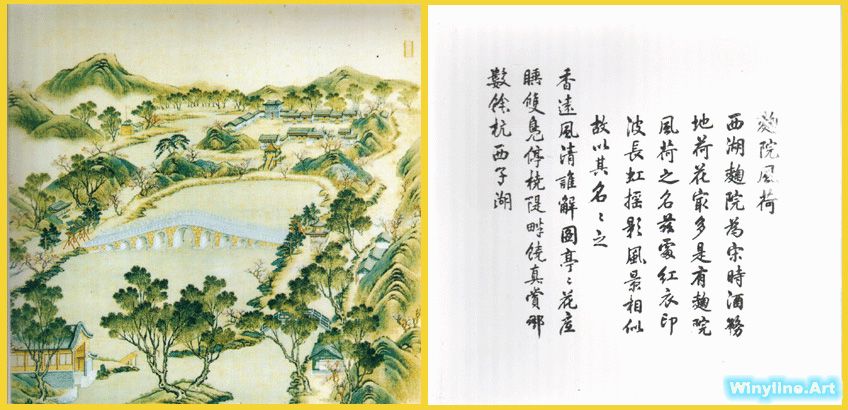 麯院風荷
西湖麯院為宋時酒務
地荷花最多是有麯院
風荷之名茲處紅衣印
波長虹搖影風景相似
故以其名〻之
香遠風清誰解圖亭〻花底
睡雙鳧停橈隄畔饒真賞那
數餘杭西子湖
Winyline.Art